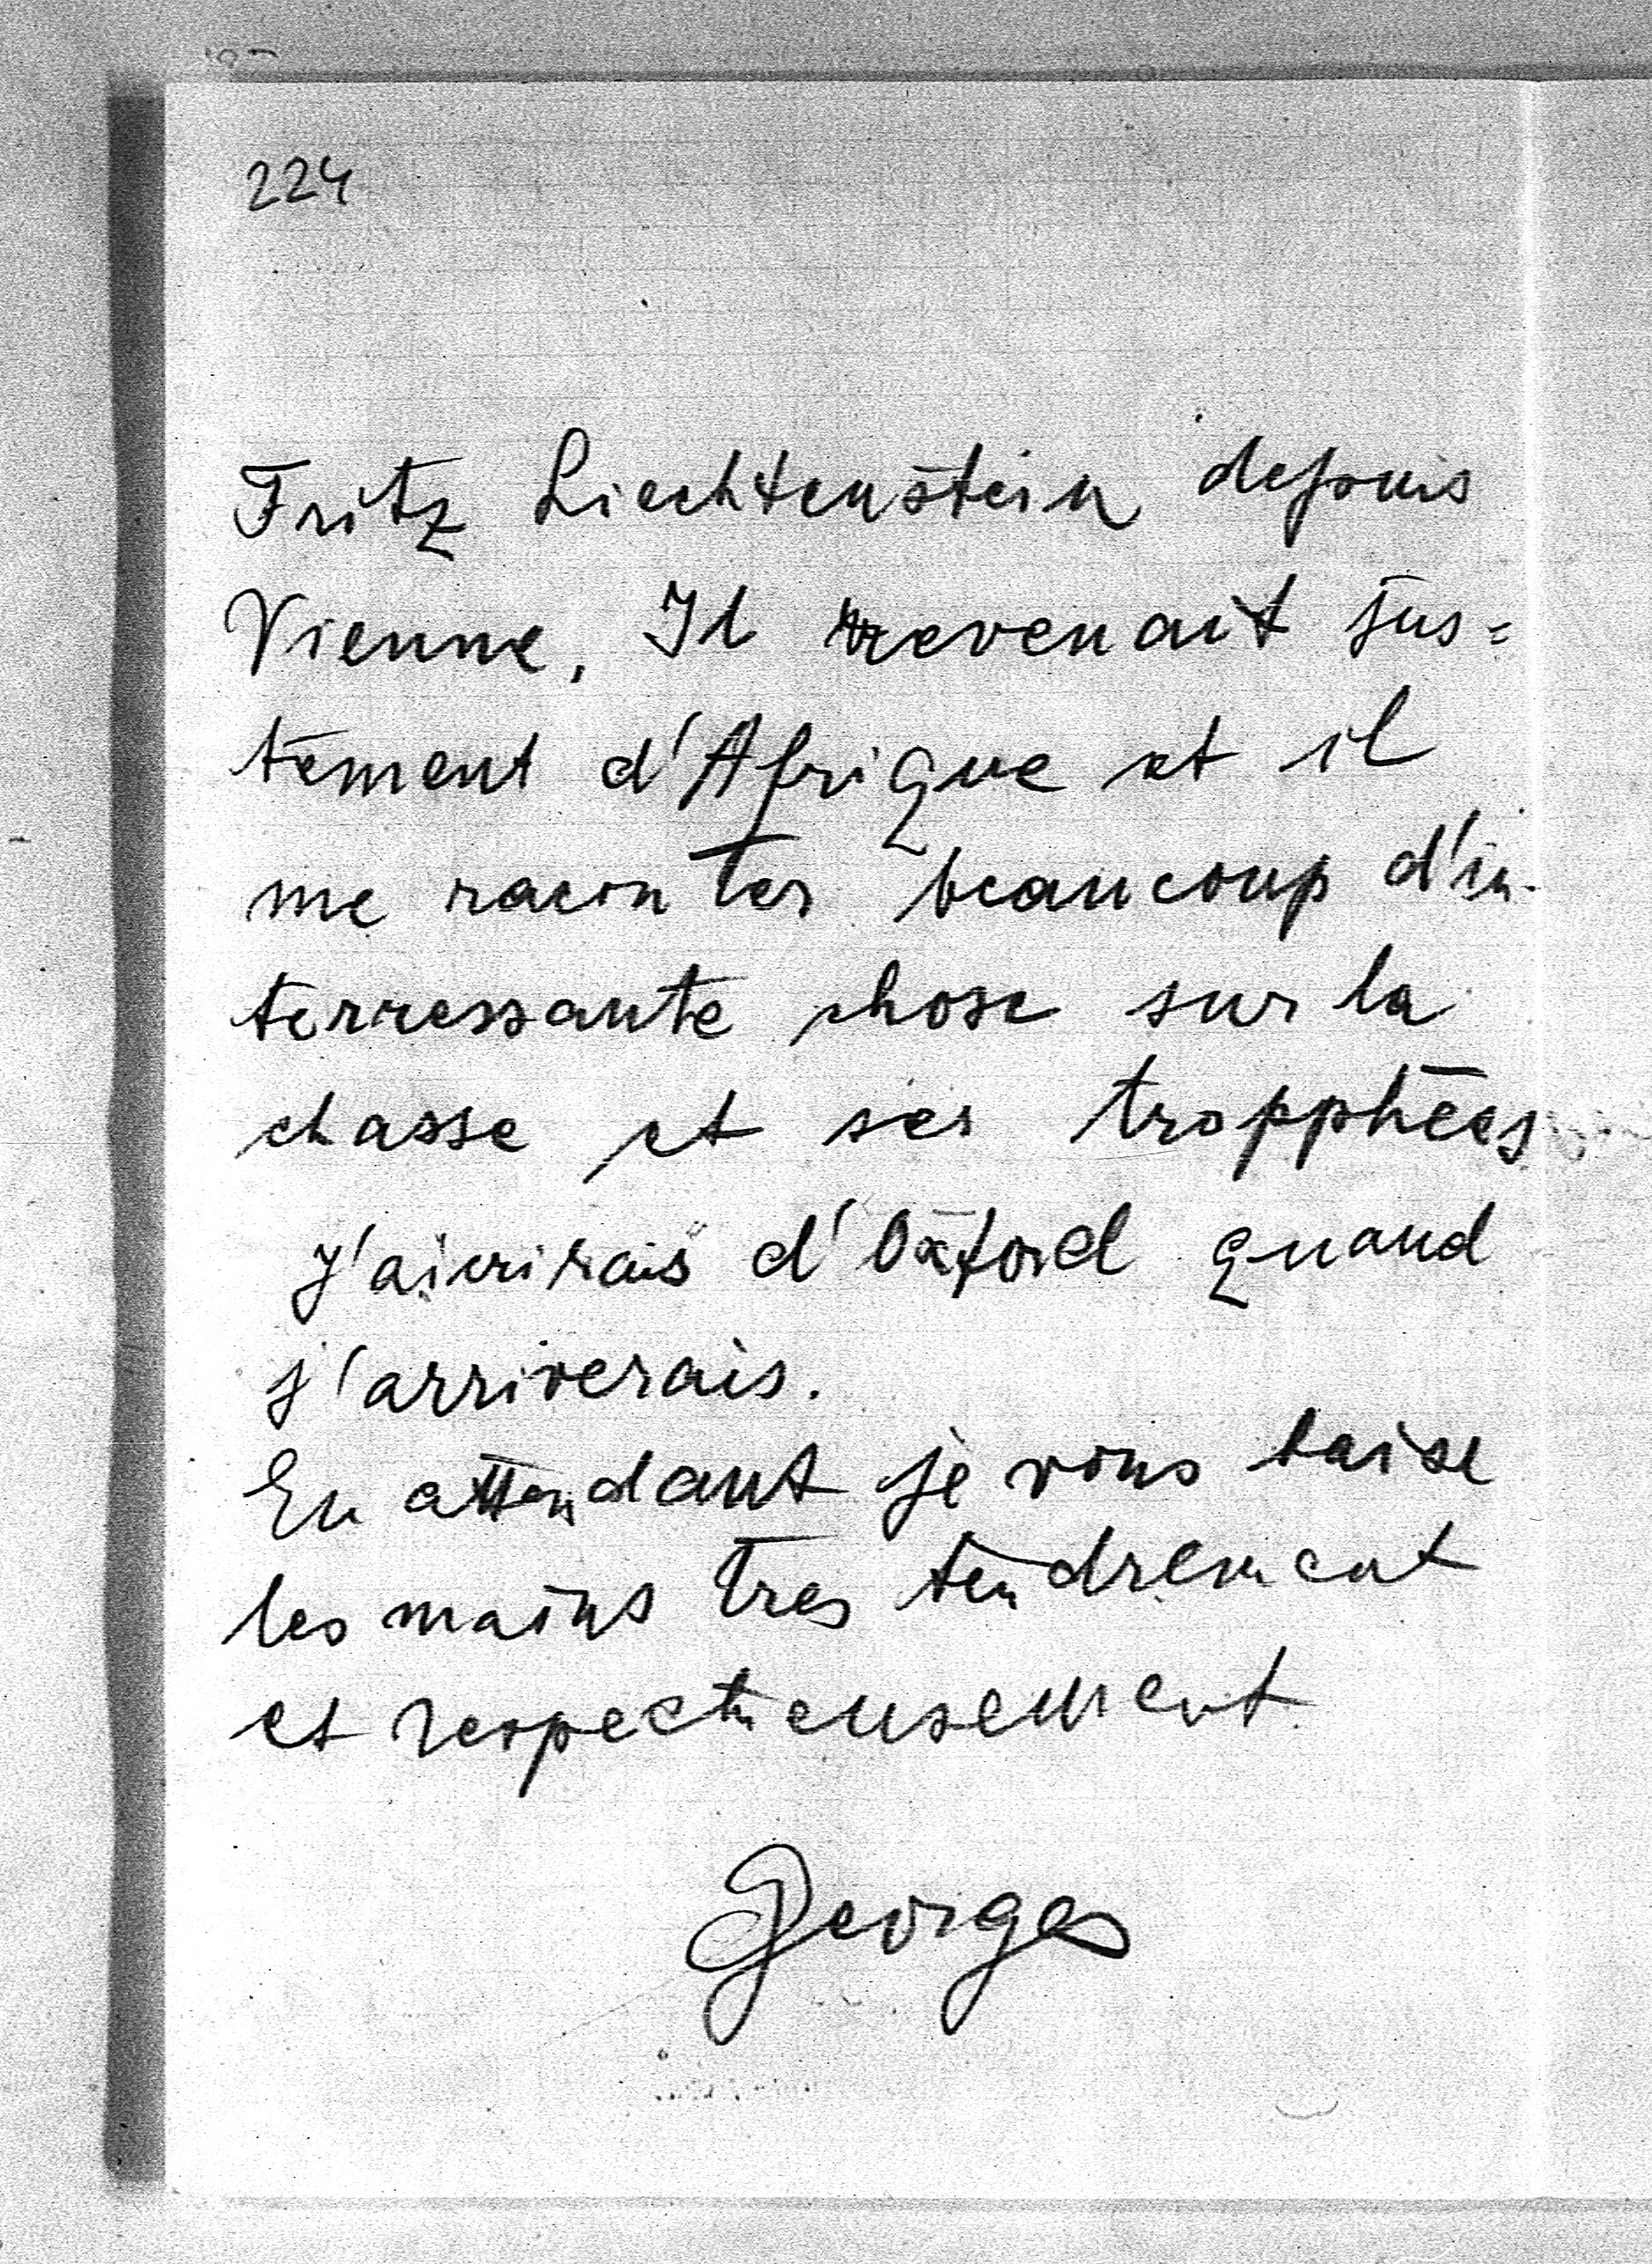 224
Fritz Liechtenstein depuis
Vienne. Il revenait jus=
tement d'Afrique et il
me raconter beaucoup d'in-
terressante chose sur la
chasse et ses tropphées
J'aicrirais d'Oxford quand
j'arriverais.
En attendant je vous baise
les mains tres tendrement
et respectueusement
Georges